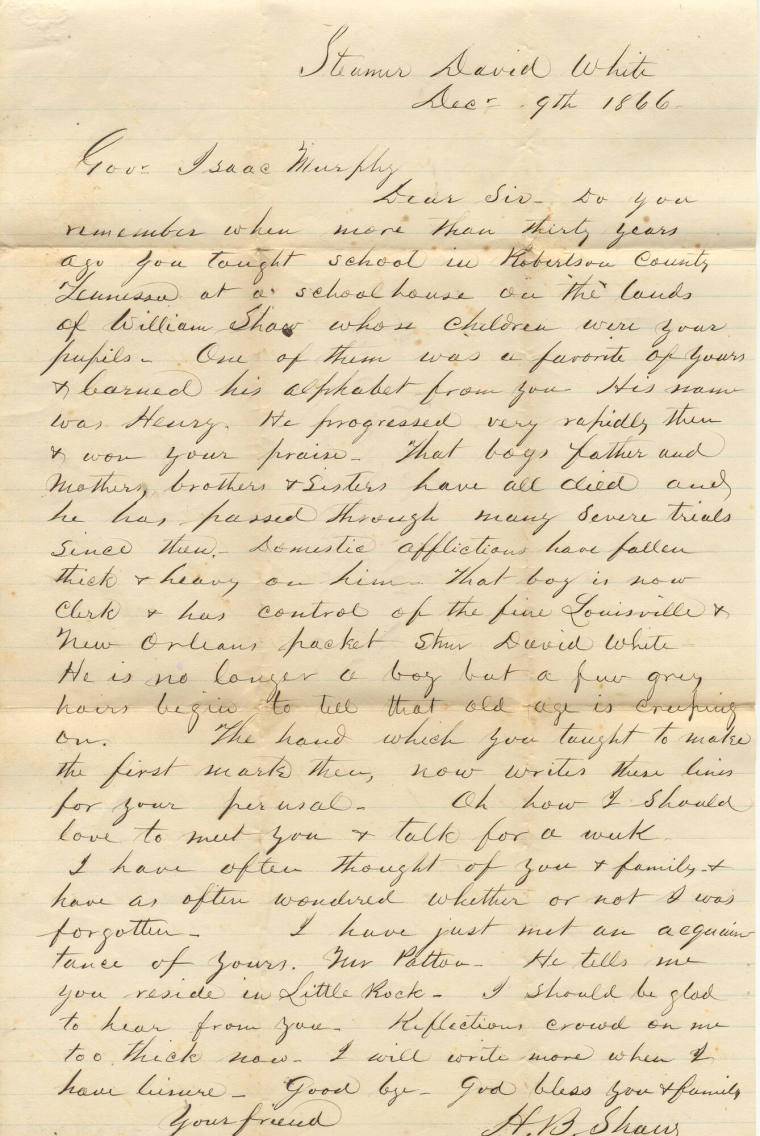 Steamer David White
Decr 9th 1866
Govr Isaac Murphy
Dear Sir - Do you
remember when more than thirty years
ago you taught school in Robertson County
Tennessee at a school house on the lands
of William Shaw whose children were your
pupils - One of them was a favorite of yours
& learned his alphabet from you His name
was Henry. He progressed very rapidly then
& won your praise - That boys father and
Mother, brothers & Sisters have all died and
he has passed through many severe trials
since then. - Domestic afflictions have fallen
thick & heavy on him - That boy is now
Clerk & has control of the fine Louisville &
New Orleans packet Stmr David White
He is no longer a boy but a few grey
hairs begin to tell that old age is creeping
on. The hand which you taught to make
the first mark then, now writes these lines
for your perusal - Oh how I should
love to meet you & talk for a week
I have often thought of you & family &
have as often wondered whether or not I was
forgotten - I have just met an acquain
tance of yours. Mr Patton - He tells me
you reside in Little Rock - I should be glad
to hear from you - Reflections crowd on me
too thick now - I will write more when I
have leisure - Good bye - God bless you & family
Your friend H. B. Shaw